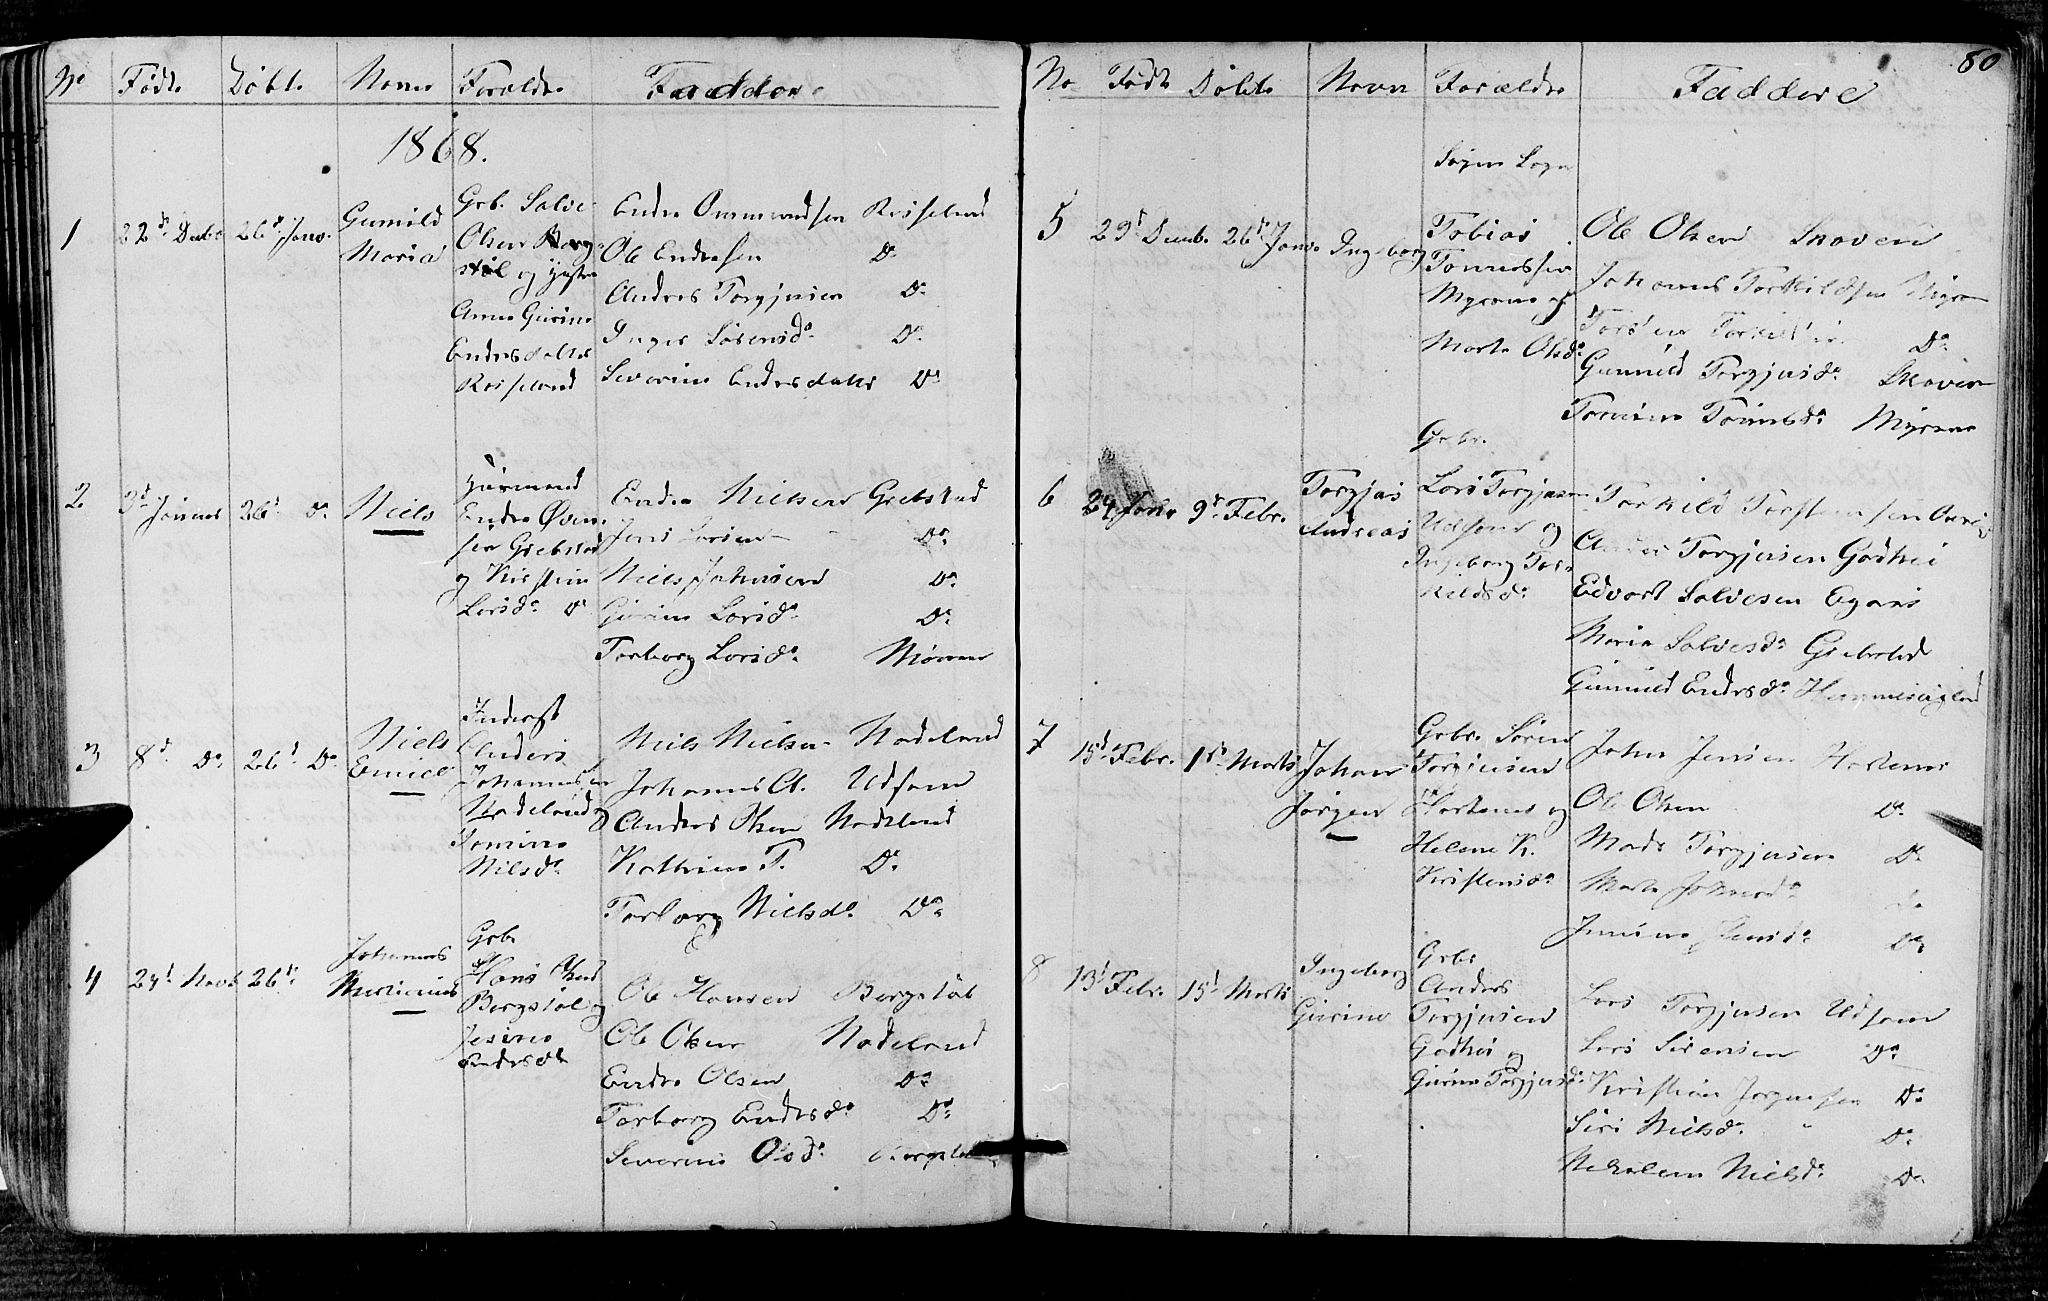 No Født Døbt Navn Forældre Faddere
1868.
1 22d Decbr 26d Janr. Gunuld Maria
Grb. Salve
Olsen Berg
støl og Hustru
Anne Gurine
Endresdatter
Røiseland
Endre Ommundsen Røiseland
Ole Endresen Do
Andres Torgjusen Do
Inger Sørensdr. Do
Severine Endresdatter Do
2 3d Januar 26d Do Niels
Huusmand
Endre Øven
sen Grebstad
og Kirstine
Larsdr. Do
Endre Nielsen Grebstad
Jens Larsen Do
Niels Johnsen Do
Gurine Larsdr. Do
Torborg Larsdr.
3 8d Do 26d Do Niels Emiel
Inderst
Anders
Johannessen
Nodeland og
Tomine
Nilsdr.
Niels Nielsen Nodeland
Johannes A. Udsone
Anders Olsen Nodeland
Kathrine T. Do
Torborg Nielsdr. Do
4 24d Novb 26d Johannes Martinius
Grb.
Hans Olsen
Bergstøl og
Jesine
Endresdr
Ole Hansen Bergstøl
Ole Olsen Nodeland
Endre Olsen Do
Torborg Endresdr. Do
Severine Olsdr. Bergstøl
80
No Født Døbt Navn Forældre Faddere
Søgne Sogn
5 29d Decmb. 26d Janr. Ingeborg
Tobias
Tønnessen
Myrene og
Marte Olsdr.
Ole Olsen Skoven
Johannes Torkildsen Myren
Do
Gunuld Torgjusdr. Skoven
Tomine Tønnesdr. Myrene
6 24 Janr 9d Febr. Torgjus Andreas
Grbr.
Lars Torgjusen
Udsone og
Ingeborg Tor
kildsdr.
Torkild Torstensen
Anders Torgjusen Godhei
Edvart Salvesen
Maria Salvesdr. Grebsted
Gunuld Endresdr.
7 15d Febr. 1d Marts Johan Jørgen
Grbr. Søren
Torgjusen
Hortenes og
Helene K.
Kristensdr.
John Jensen Hortenes
Ole Olsen Do
Mads Torgjusen Do
Marte Do
Jensine Jensdr. Do
8 13d Febr. 15d Marts Ingeborg Gurine
Grbr
Anders
Torgjusen
Godhei og
Gurine Torgjusdr.
Lars Torgjusen Udsone
Lars Sørensen Do
Kristian Jørgensen Do
Siri Nielsdr. Do
Nielsdr. Do